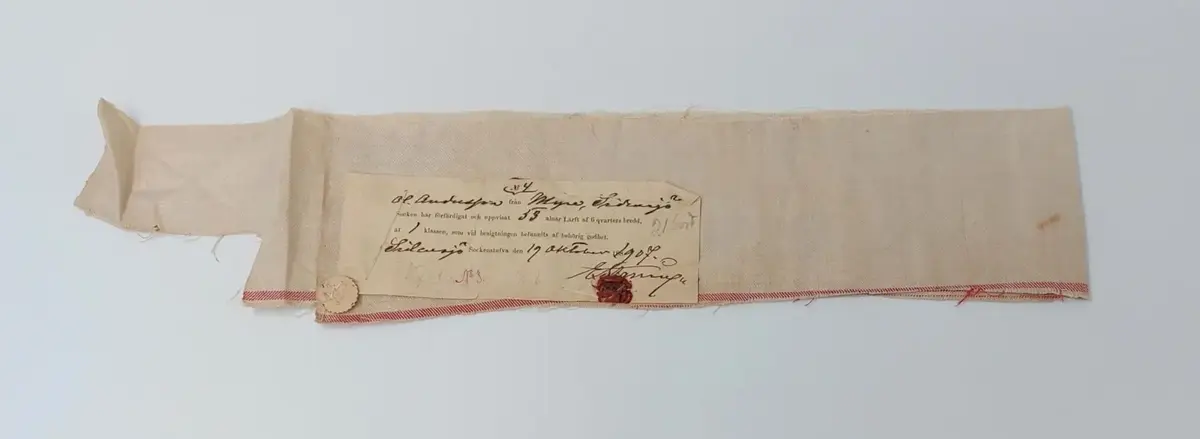 № 4
Ol. Andersson från Myre, Sidensjö
Socken har förfärdigat och uppvisat 53 alnar Lärft af 6 quarters bredd,
af 1 klassen, som vid besigtningen befunnits af behörig godhet.
Sidensjö Sockenstufva den 19 Oktober 1907.
№ 3